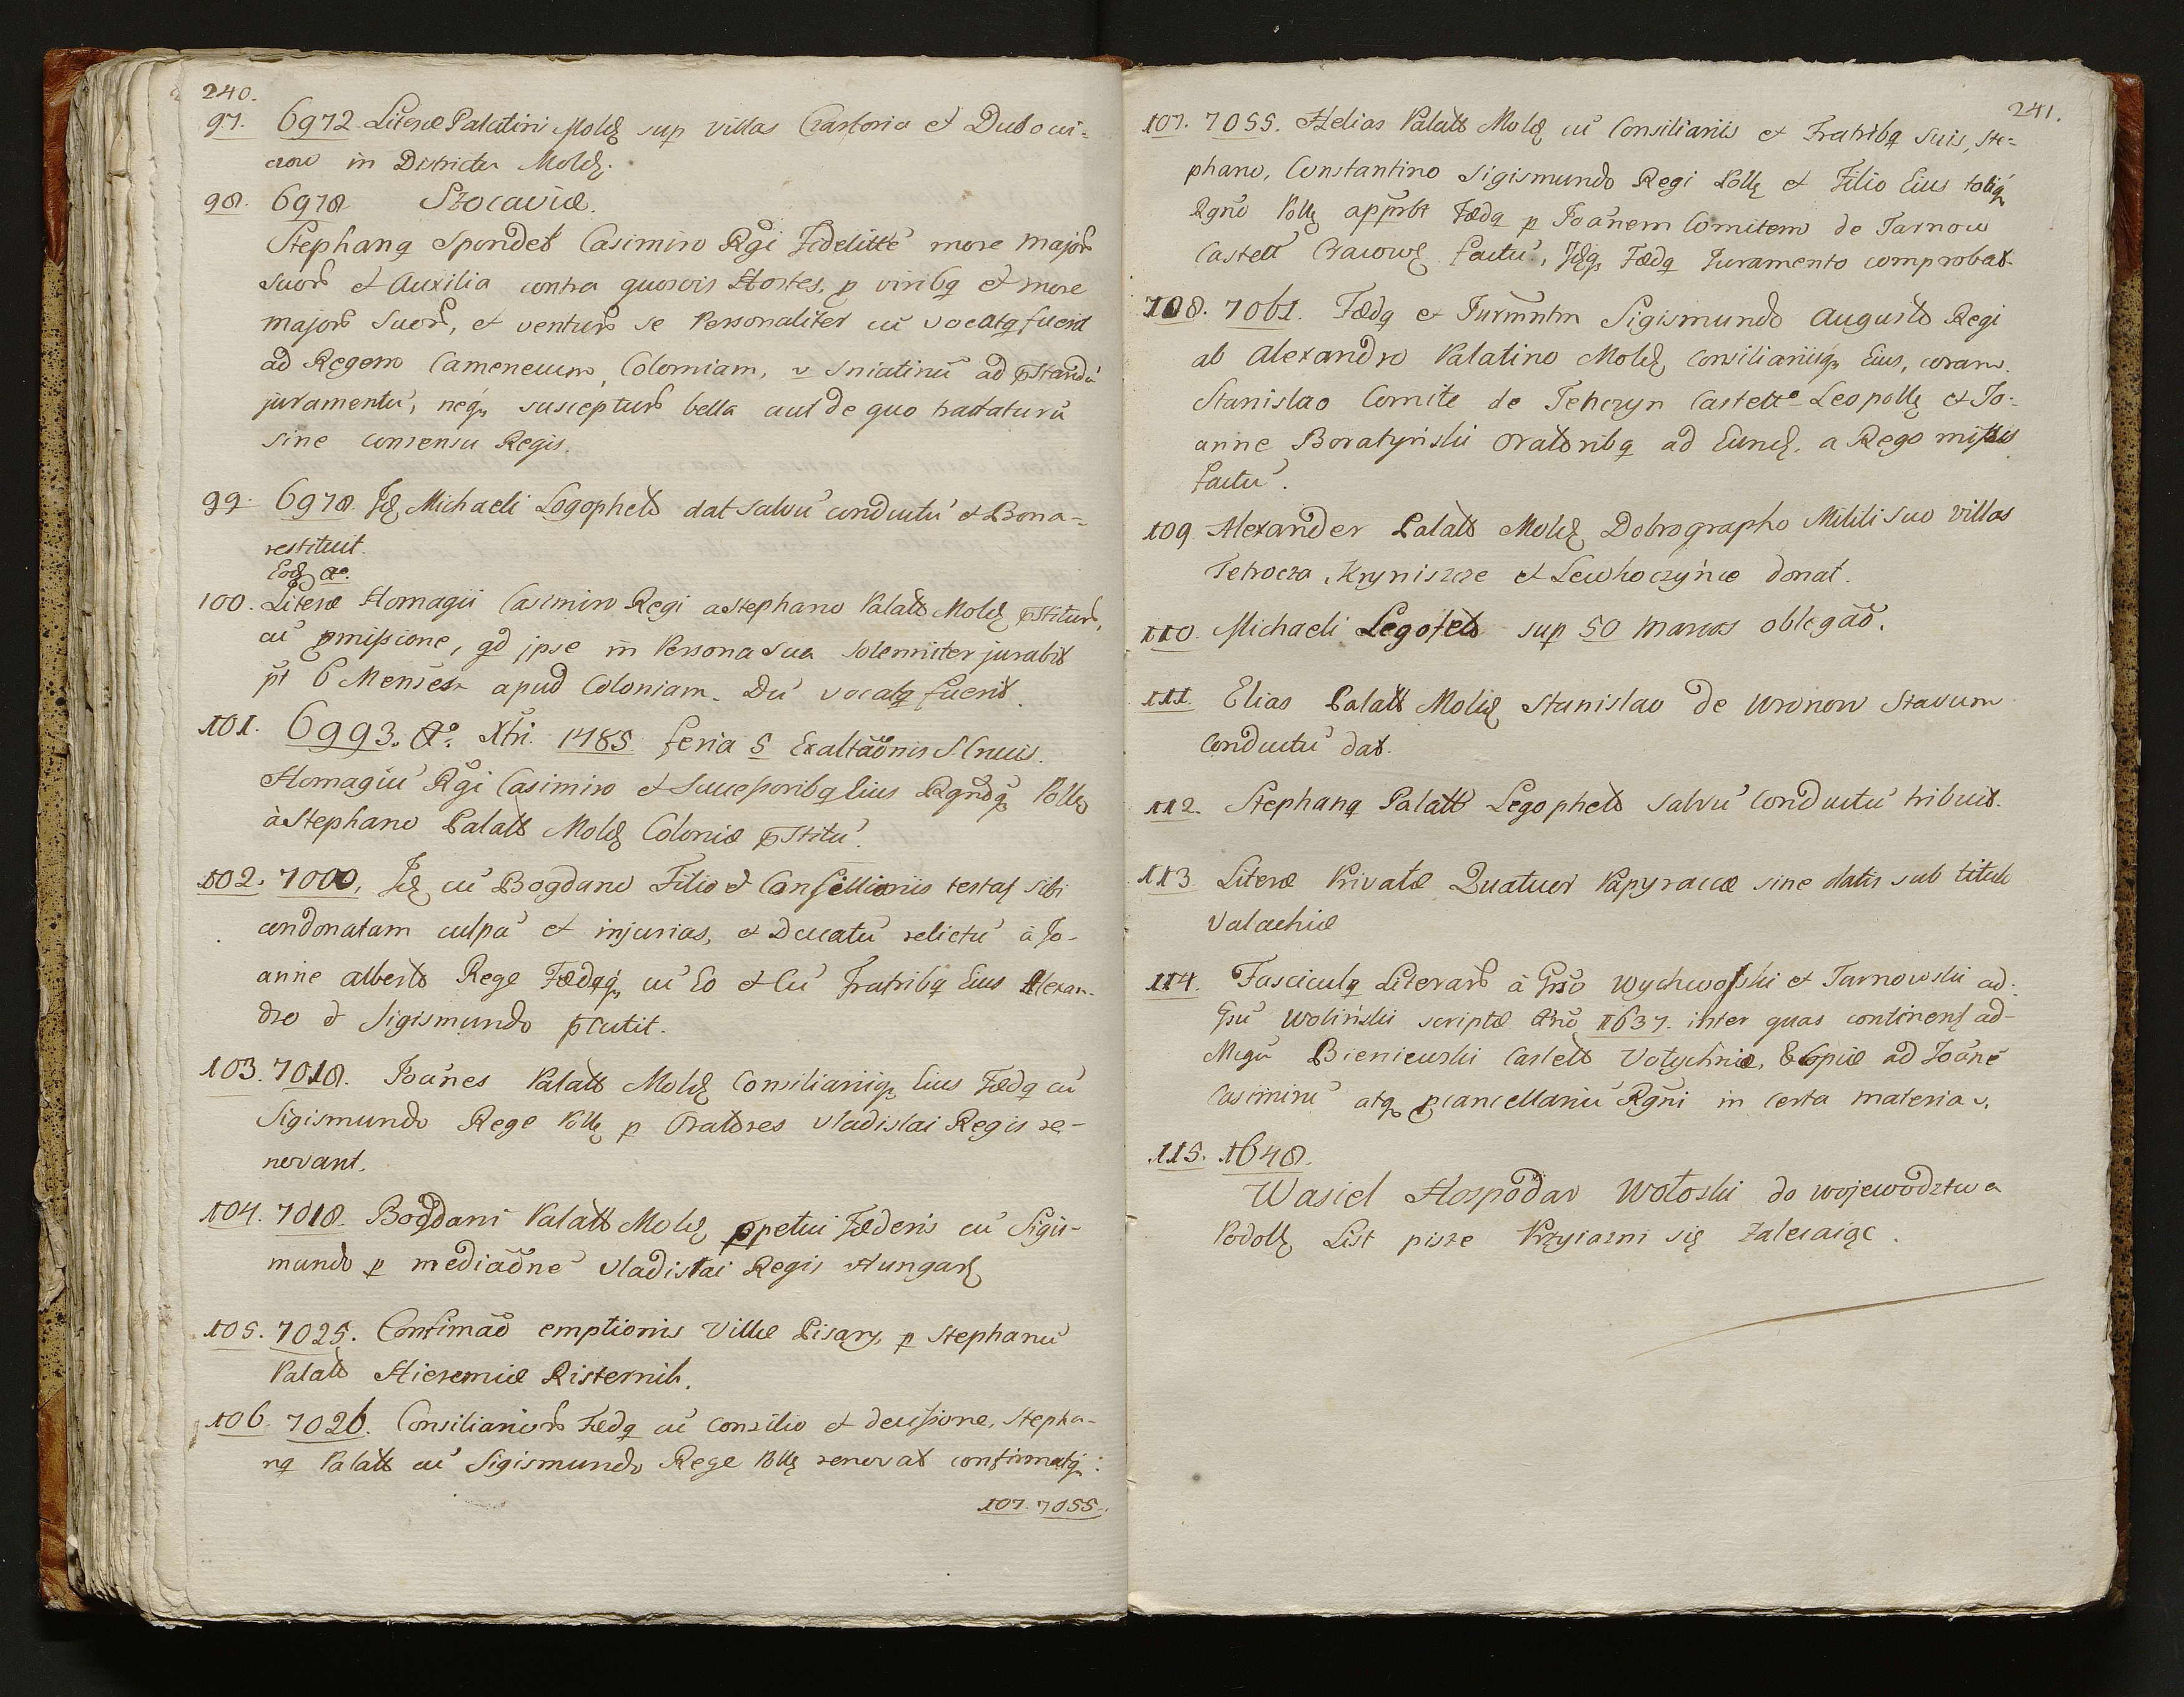 240.
97. 6972 Literæ Palatini Mold sup villas Czartoria et Dubowi-
crow in Districtu Mold.
98. 6978 Szocaviæ.
Stephanq Spondet Casimiro Rgi Fidelitté more major
suor et Auxilia contra quosvis Hostes, p viribq et more
major suor, et ventur se Personaliter cū vocatq fuerit
ad Regem Cameneuum, Colomiam, v Sniatinū ad pstandū
juramentū, neq susceptur bella aut de quo tractaturū
sine consensu Regis.
99. 6978. Jd Michaeli Logopheto dat salvū conductū et Bona-
restituit.
Eod ao.
100. Literæ Homagii Casimiro Regi a Stephano Palatt Mold pstitur,
cū pmissione, qd jpse in Persona sua solemniter jurabit
pt 6 Menses apud Coloniam. Dū vocatq fuerit.
101. 6993. Ao. Xtri. 1485 feria 5 Exaltāonis S. Crucis.
Homagiū Rgi Casimiro et Successoribq Eius Rgnoq Polle
à Stephano Palatt Mold Coloniæ pstitū.
102. 7000, Jd cū Bogdano Filio et Consiliariis testat sibi
condonatam culpā et injurias, et Ducatū relictū à Jo-
anne Alberto Rege Fædqq cū Eo et Cū Fratribq Eius Alexan-
dro et Sigismundo pcutit.
103. 7018. Joānes Palatt Mold Consiliariiq Eius Fædq cū
Sigismundo Rege Polle p Oratores Vladislai Regis re-
novant.
104. 7018. Bogdani Palatt Mold ppetui Fæderis cū Sigis-
mundo p mediāoné Vladislai Regis Hungar
105. 7025. Confimāo emptionis Villæ Pisary, p Stephanū
Palatt Hieremiæ Risternik.
106. 7026. Consiliarior Fædq cū consilio et decissione, Stepha-
nq Palatt cū Sigismundo Rege Polle renovat confirmatq:
107. 7055.
241.
107. 7055. Helias Palatt Mold cū Consiliariis et Fratribq suis, Ste-
phano, Constantino Sigismundo Regi Polle et Filio Eius totiq
Rgno Polle apprbt Fædq p Joānem Comitem de Tarnow
Castell Cracow factū, Jdq Fædq Juramento comprobat.
108. 7061. Fædq et Jurmntm Sigismundo Augusto Regi
ab Alexandro Palatino Mold Consiliariisq Eius, coram
Stanislao Comite de Tehczyn Castello Leopolle et Jo-
anne Boratyński Oratoribq ad Eund. a Rege missis
factū.
109 Alexander Palatt Mold Dobrographo Militi suo villas
Tetrocza, Kryniszcze et Lewkoczyńce donat.
110. Michaeli Legofeto sup 50 marcas oblegāo.
111. Elias Palatt Mold Stanislao de Wronow Stavum
Conductū dat.
112. Stephanq Palatt Legopheto salvū Conductū tribuit.
113. Literæ Privatæ Quatuor Papyraceæ sine datis sub titulo
Valachiæ
114. Fasciculq Literar à Gnso Wychwoski et Tarnowski ad
Gsū Woliński scriptæ Ano 1637. inter quas continent ad-
Mgū Bieniewski Castell Volychniæ, & Copiæ ad Joāné
Casimirū atq pcancellariū Rgni in certa materia.
115. 1648.
Wasiel Hospodar Wołoski do województwa
Podoll List pisze Przyiazni się zalecaiąc.